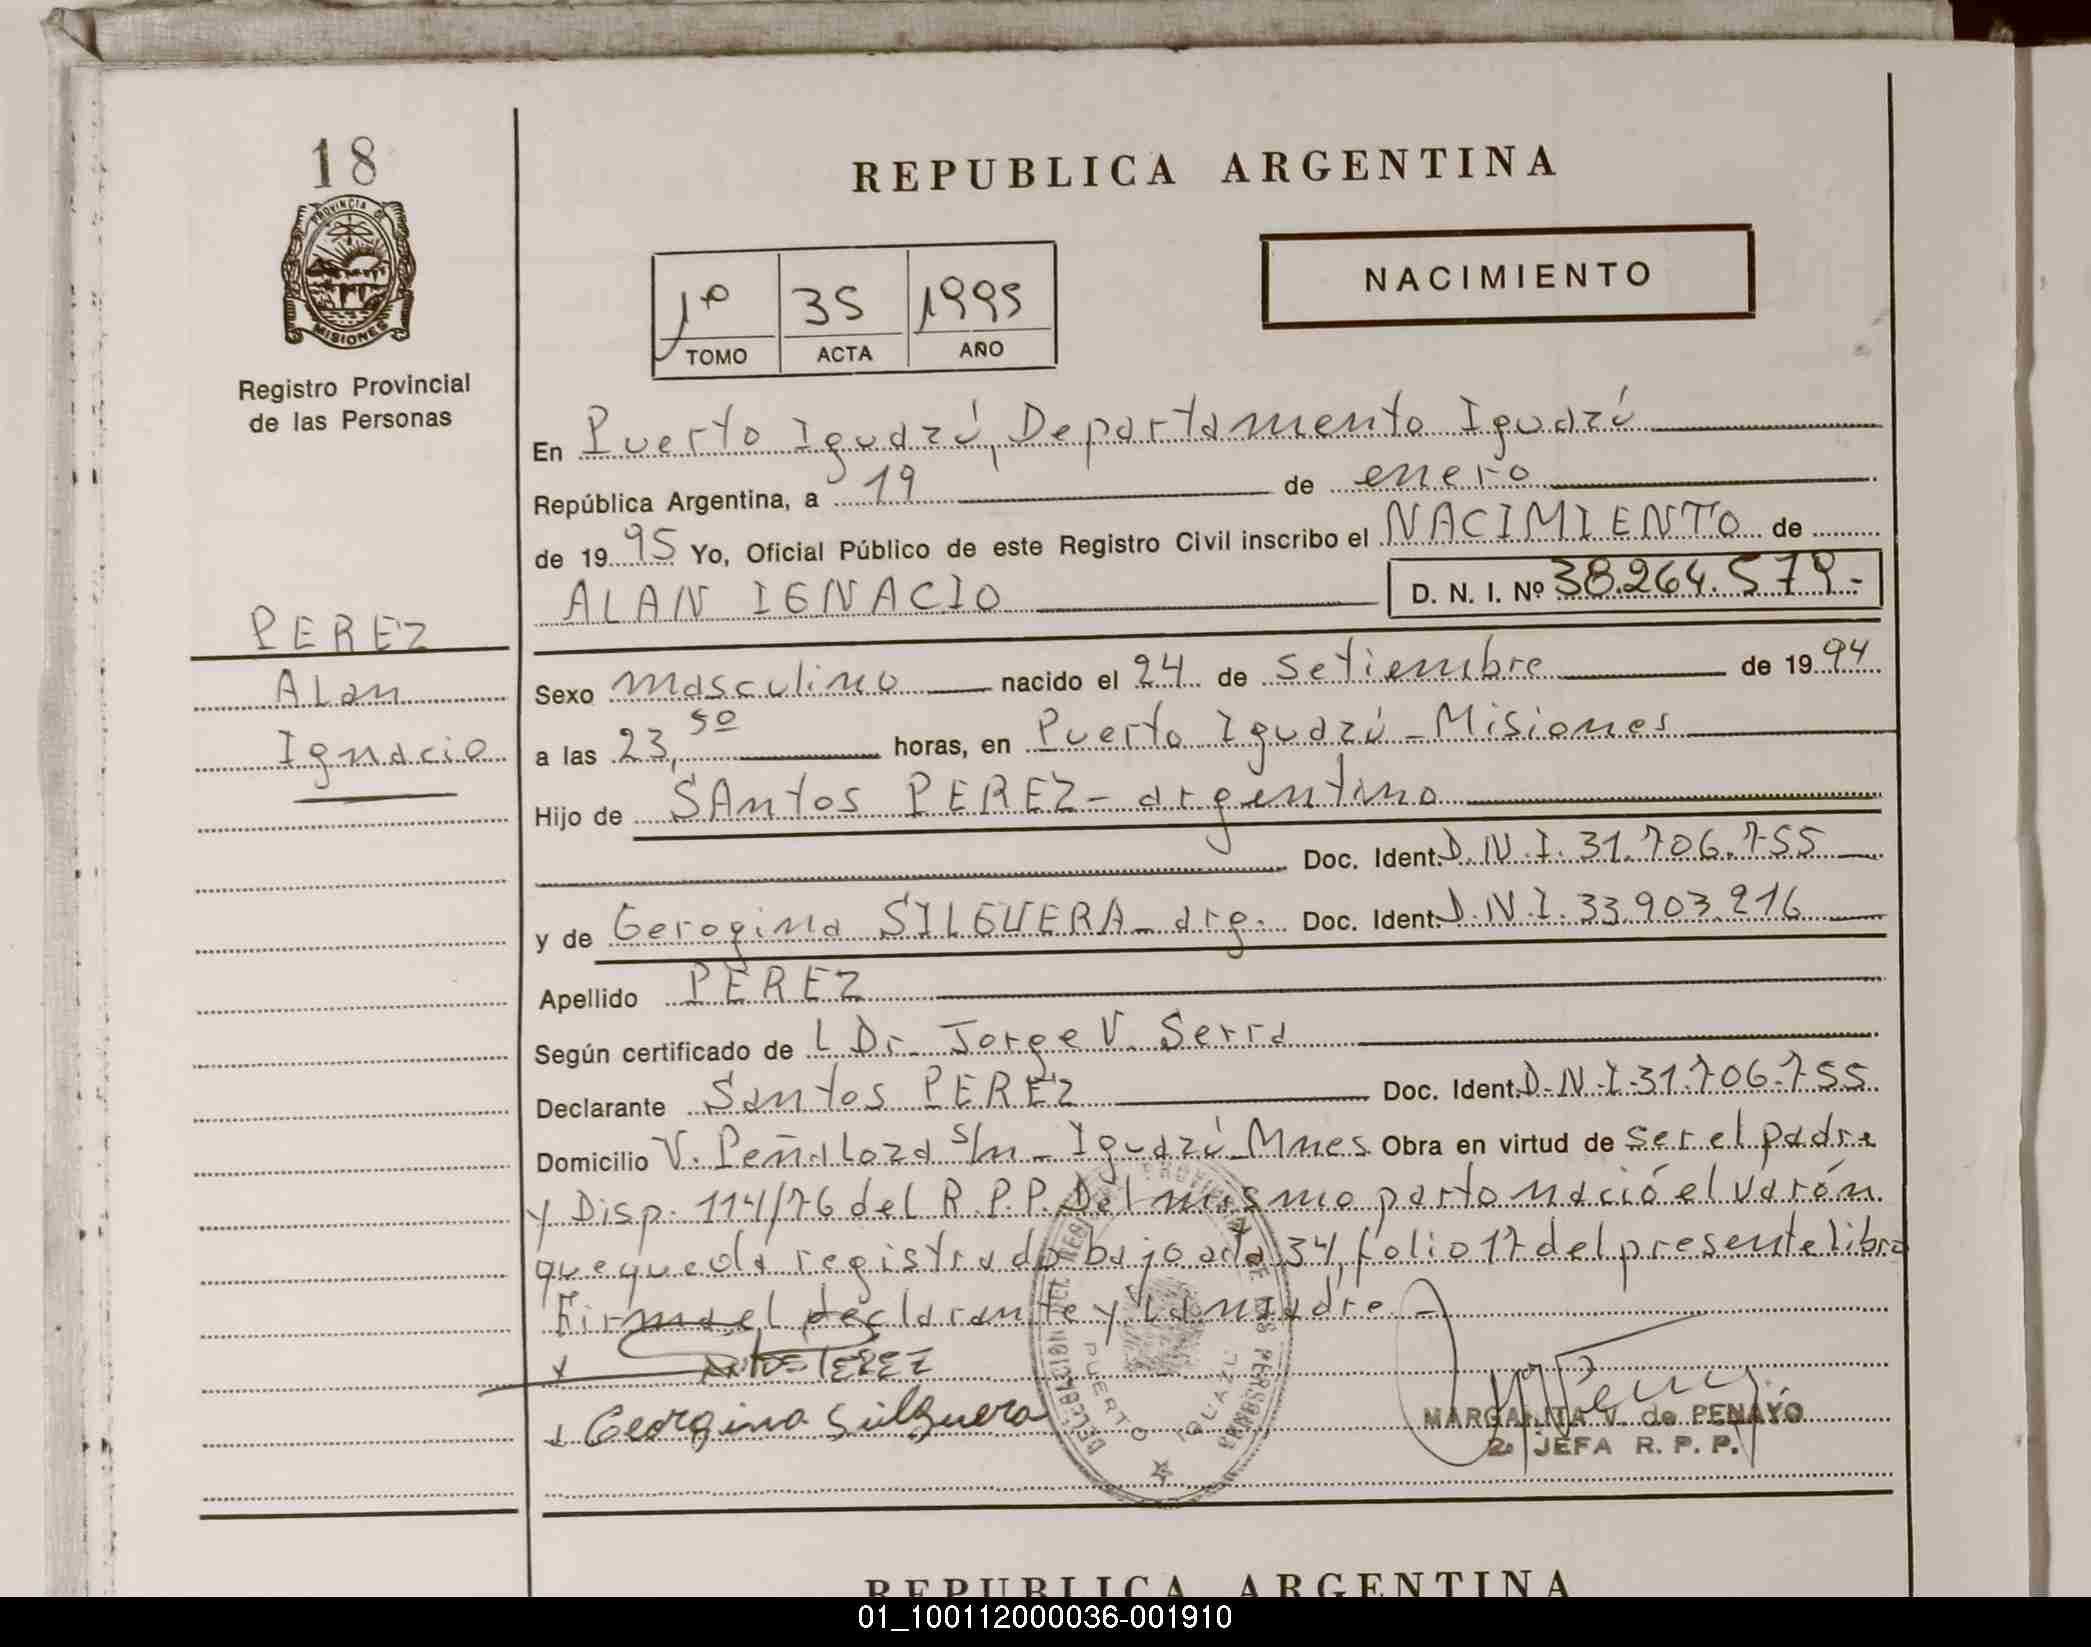 18
PROVINCIA DE
MISIONES
Registro Provincial
de las Personas
PEREZ
Alan
Ignacio
REPUBLICA ARGENTINA
1º 35 1995
TOMO ACTA AÑO
NACIMIENTO
En Puerto Iguazú, Departamento Iguazú
República Argentina, a 19 de enero
de 1995 Yo, Oficial Público de este Registro Civil inscribo el NACIMIENTO de
ALAN IGNACIO D. N. I. Nº 38.264.579.-
Sexo masculino nacido el 24 de setiembre de 1994
a las 23,50 horas, en Puerto Iguazú - Misiones
Hijo de SAntos PEREZ - argentino
Doc. Ident. D.N.I. 31.706.755
y de Gerogina SILGUERA - arg. Doc. Ident. D.N.I. 33.903.216
Apellido PEREZ
Según certificado de L Dr. Jorge V. Serra
Declarante Santos PEREZ Doc. Ident. D.N.I. 31.706.755
Domicilio V. Peñaloza s/n - Iguazú Mnes Obra en virtud de ser el padre
y Disp. 114/76 del R.P.P. Del mismo parto nació el varón
que queda registrado bajo acta 34, folio 17 del presente libro
Firma el declarante y la madre.-
x SANTOS PEREZ
x Georgina Silguera
DELEGACION DEL REGISTRO PROVINCIAL DE LAS PERSONAS
PUERTO IGUAZU
MARGARITA V. de PENAYO
2a JEFA R. P. P.
REPUBLICA ARGENTINA
01_100112000036-001910